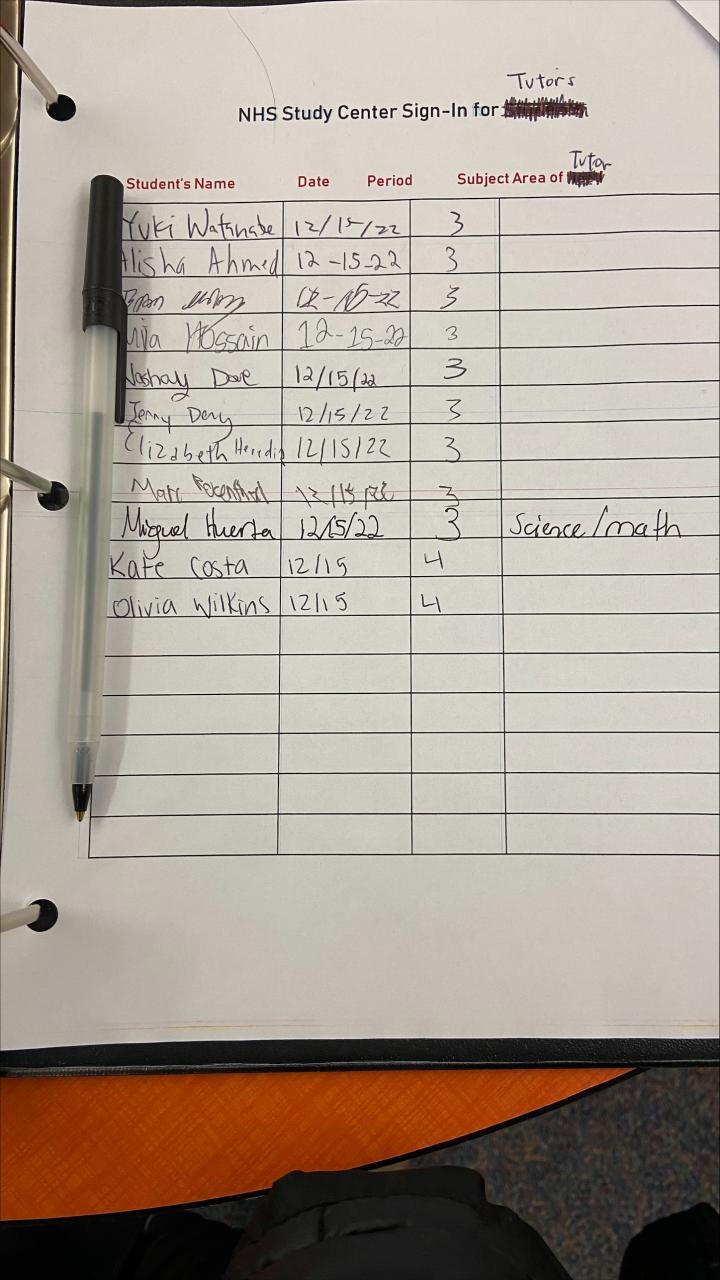 Tutors
NHS Study Center Sign-In for
Tutor
Student's Name Date Period Subject Area of
Yuki Watanabe 12/15/22 3
Alisha Ahmed 12-15-22 3
12-15-22 3
Hossain 12-15-22 3
12/15/22 3
Jenny 12/15/22 3
Elizabeth Heredia 12/15/22 3
Marc 12/15/22 3
Miguel Huerta 12/15/22 3 Science/math
Kate Costa 12/15 4
Olivia Wilkins 12/15 4